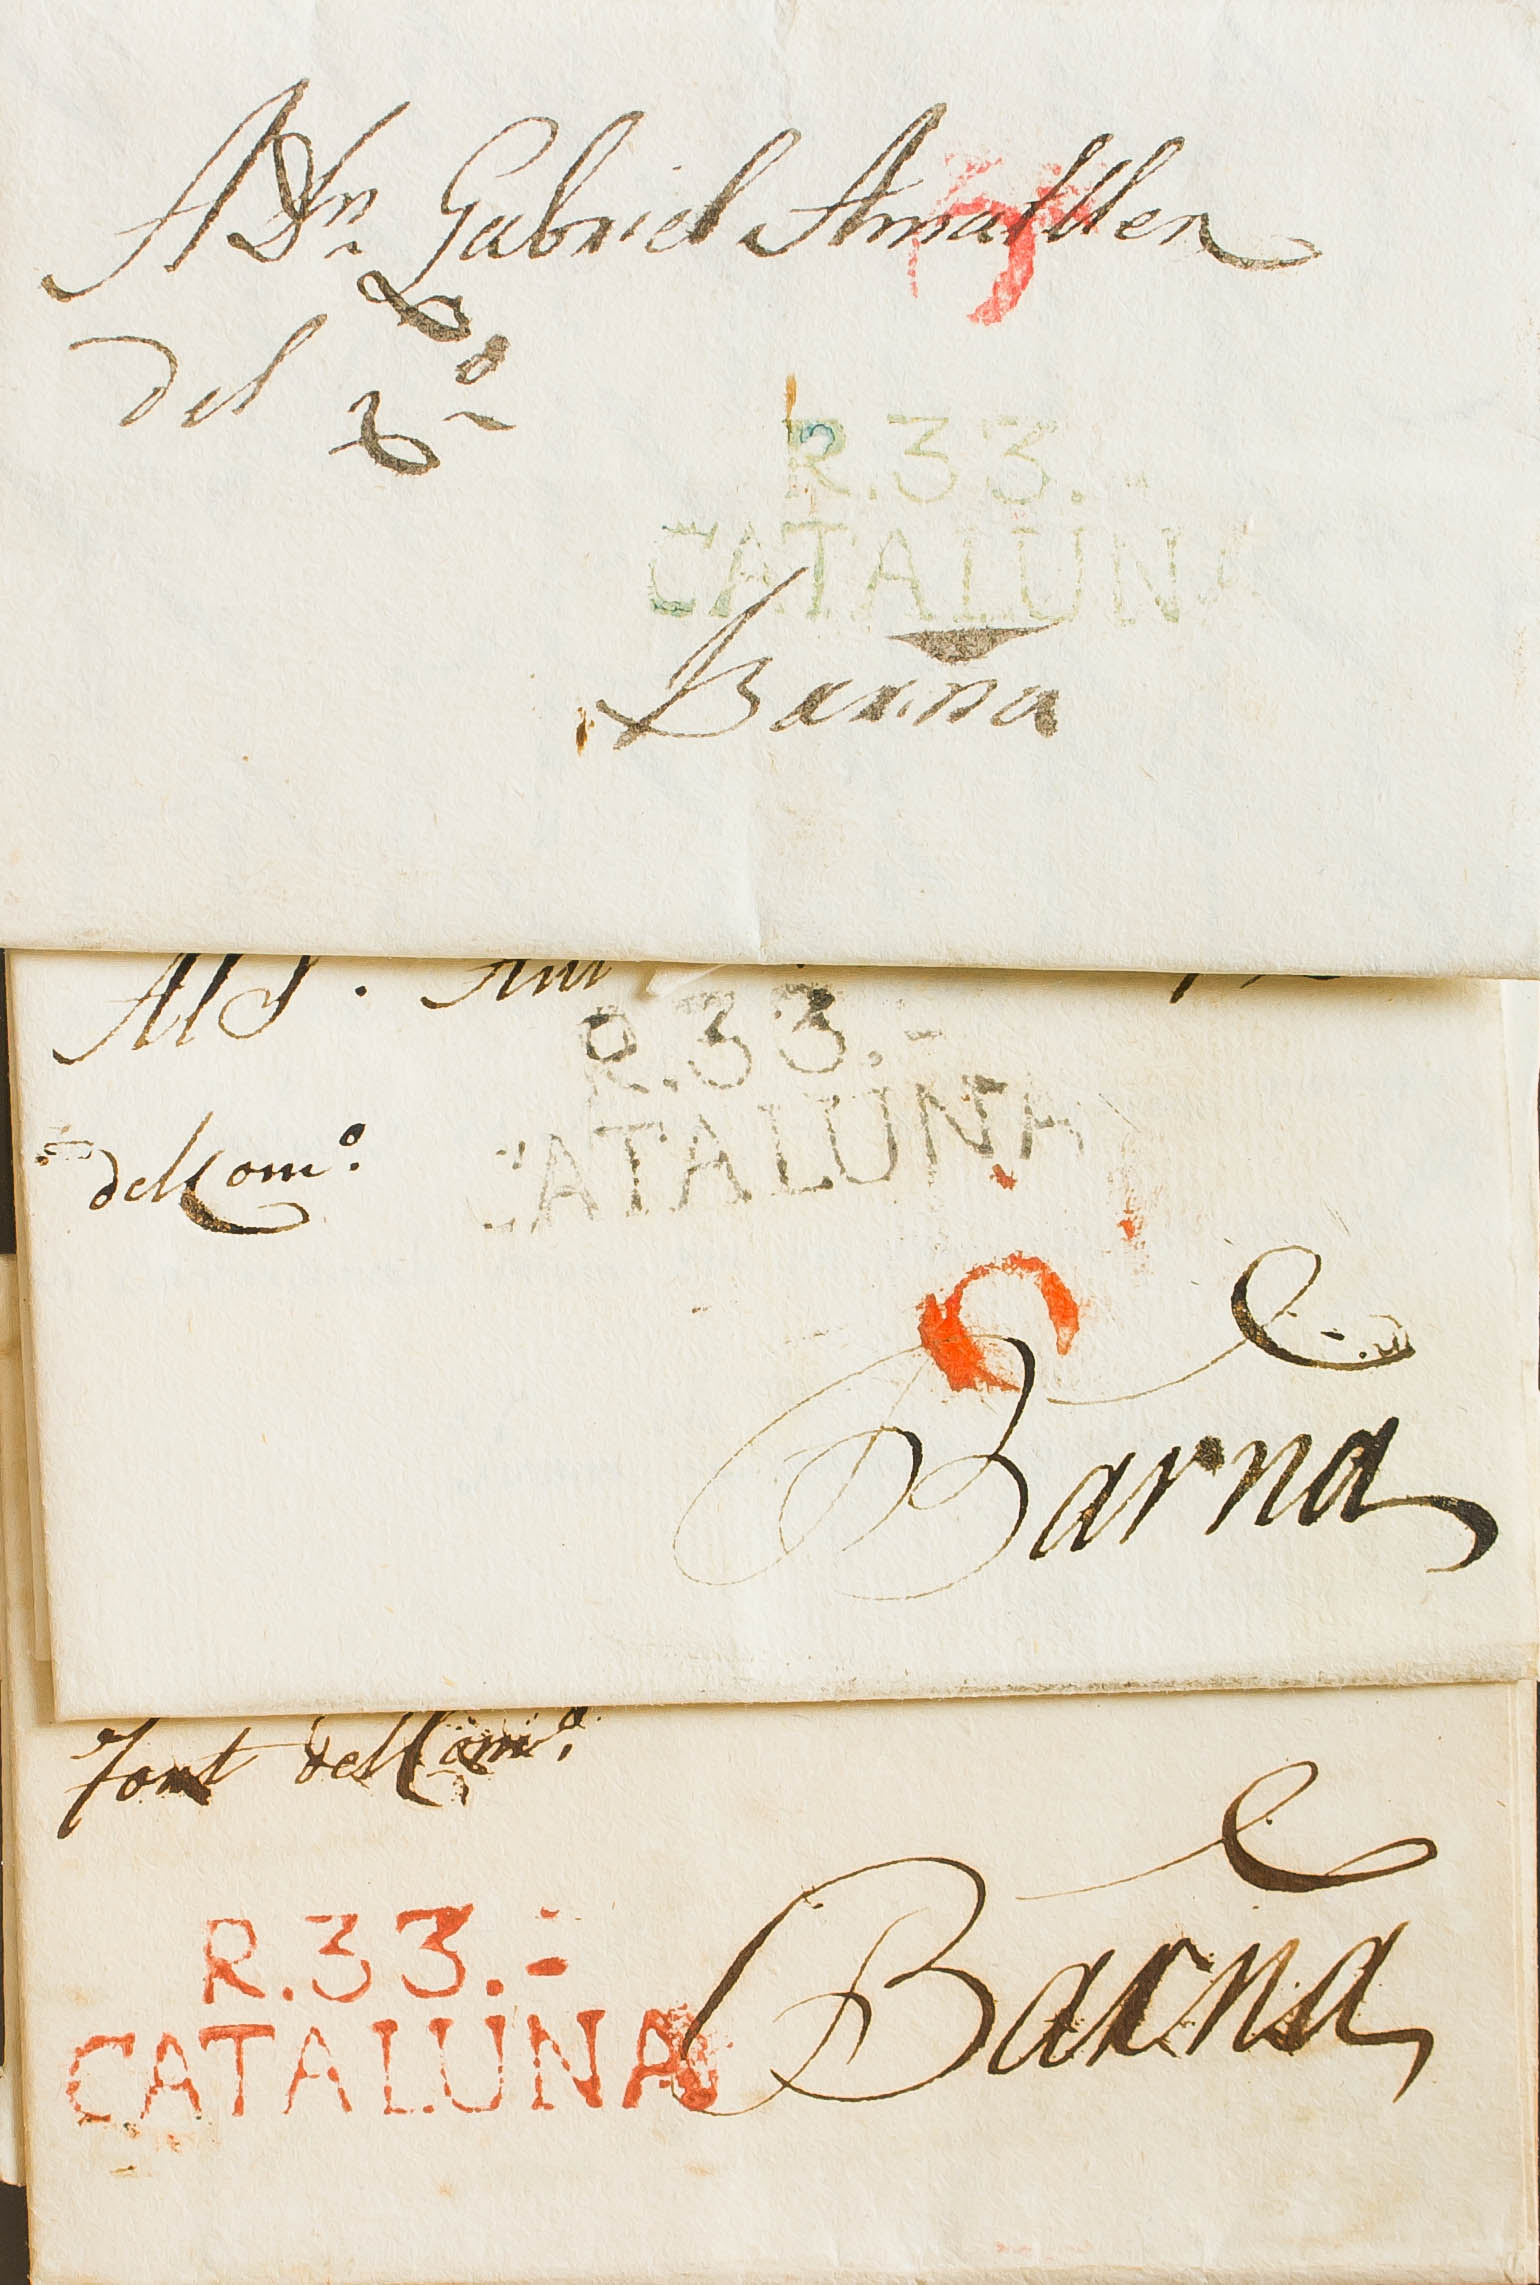 A Dn. Gabriel Amatller
del
R.33.-
CATALUNA
Barna
Al S.
R.33.-
CATALUNA
del Com.o
Barna
Font del Com.o
R.33.-
CATALUNA
Barna